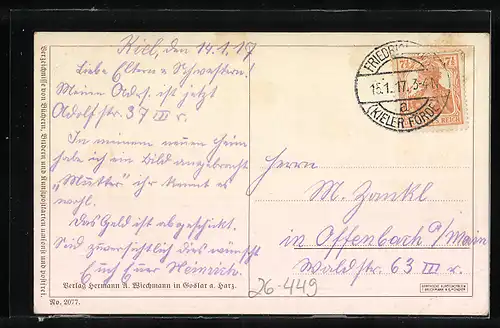 Kiel, den 14.1.17
Liebe Eltern u Schwestern!
Meine Adr. ist jetzt
Adolfstr. 37 III r
In meinem neuen Heim
habe ich ein Bild angebracht
„Mutter" ihr kennt es
wohl.
Das Geld ist abgeschickt.
Seid zuversichtlich dies wünscht
Euch Euer Heinrich.
Verlag Hermann A. Wiechmann in Goslar a. Harz.
No. 2077.
FRIEDRICH
15.1.17. 3-4 N
a
(KIELER FÖRDE)
7½ 7½
REICH
Herrn
M. Zankl
in Offenbach a/Main
Waldstr. 63 III r.
26-449
Verzeichnisse von Büchern, Bildern und Kunstpostkarten umsonst und postfrei.